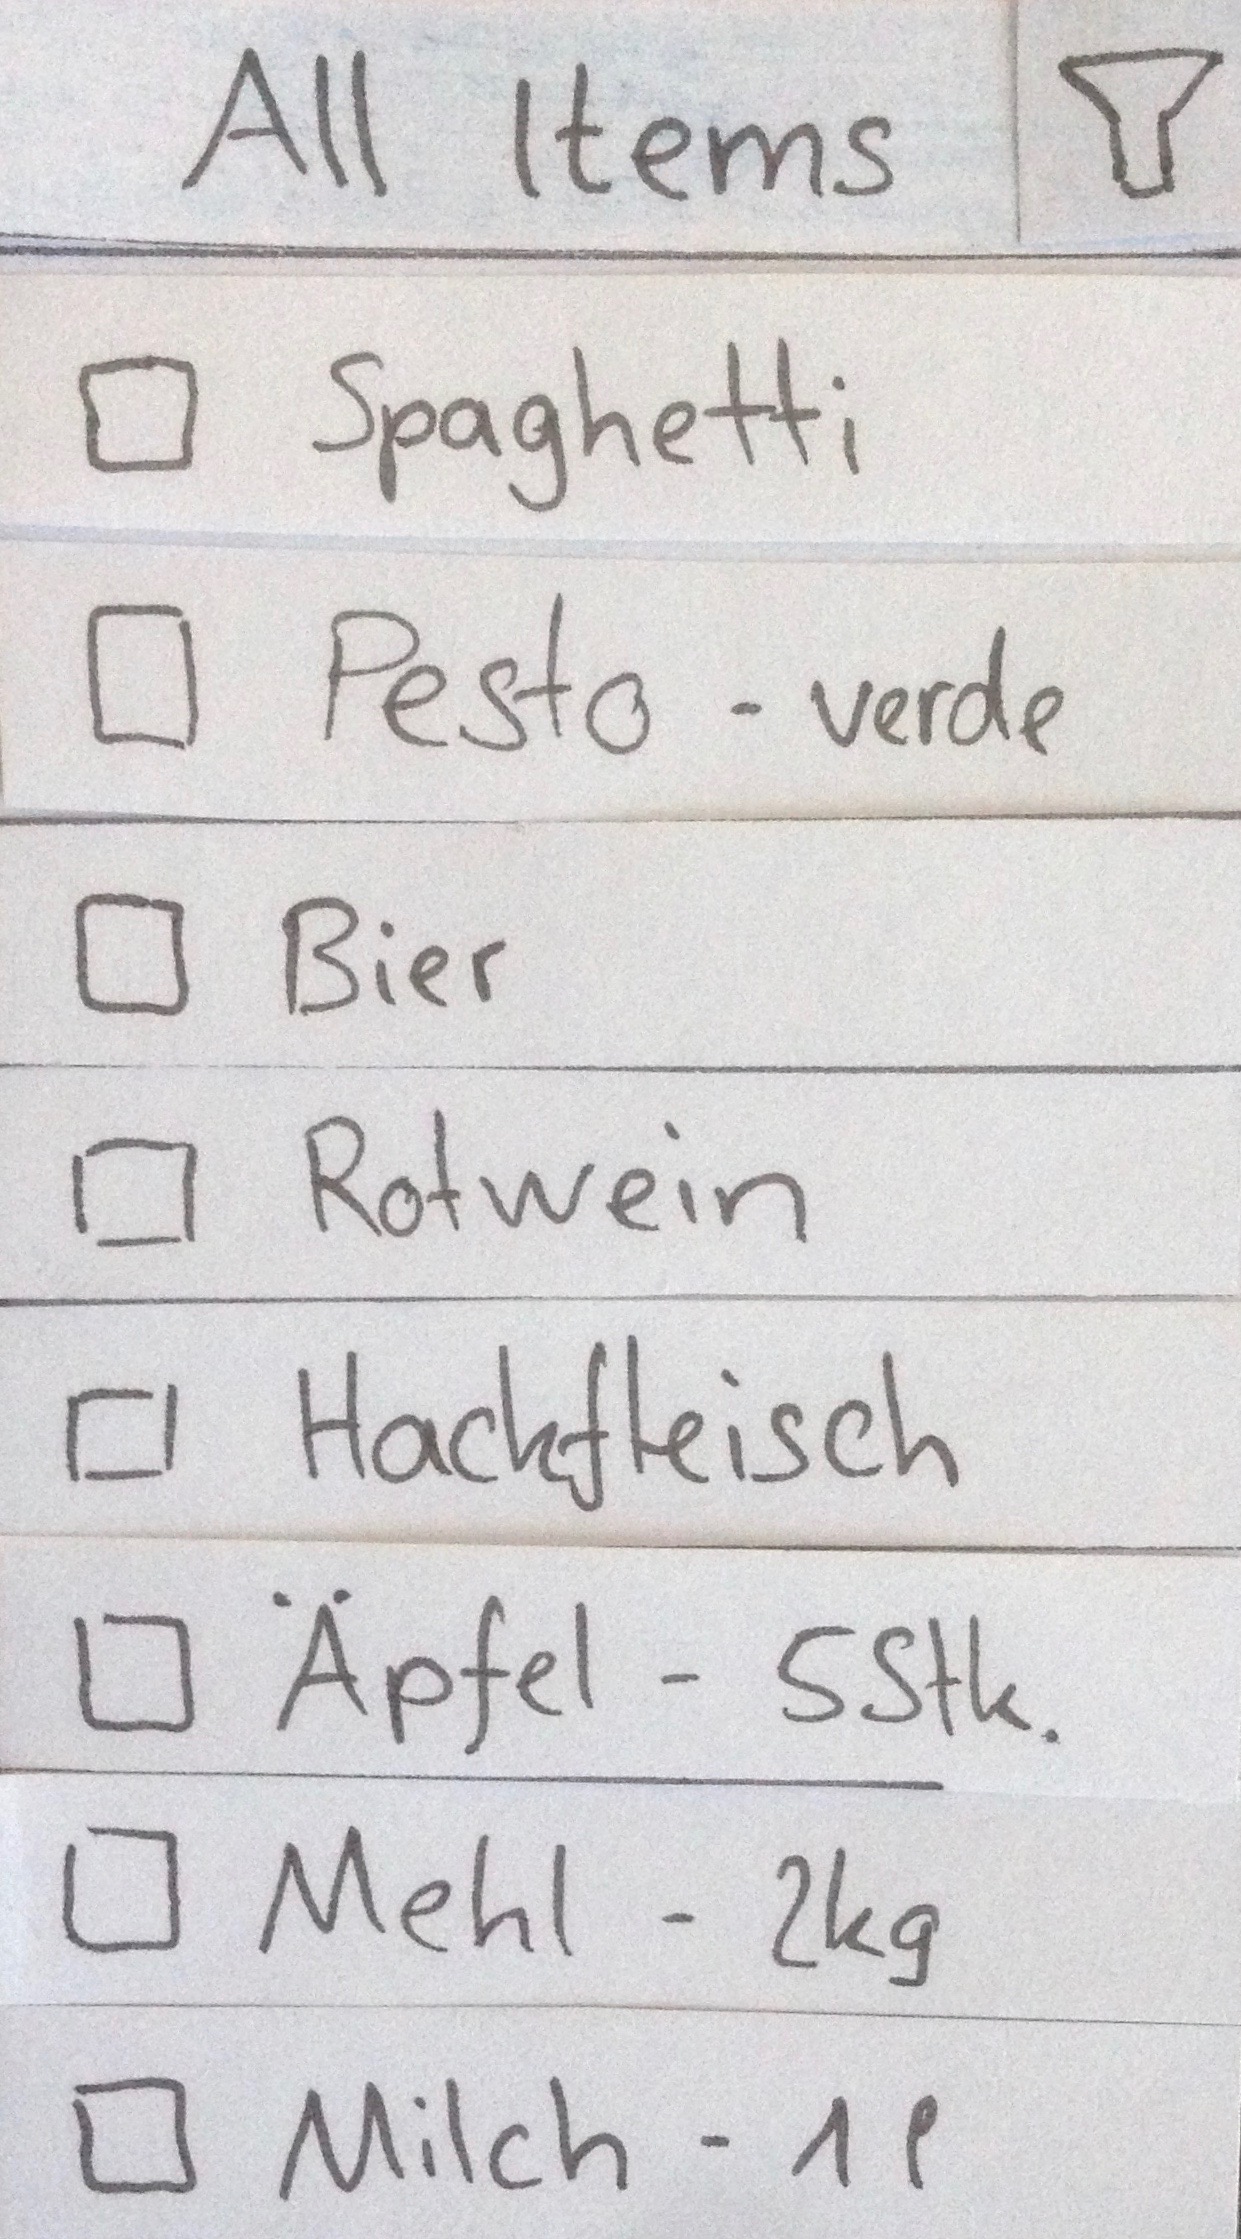 All Items
Spaghetti
Pesto - verde
Bier
Rotwein
Hackfleisch
Äpfel - 5Stk.
Mehl - 2kg
Milch - 1l